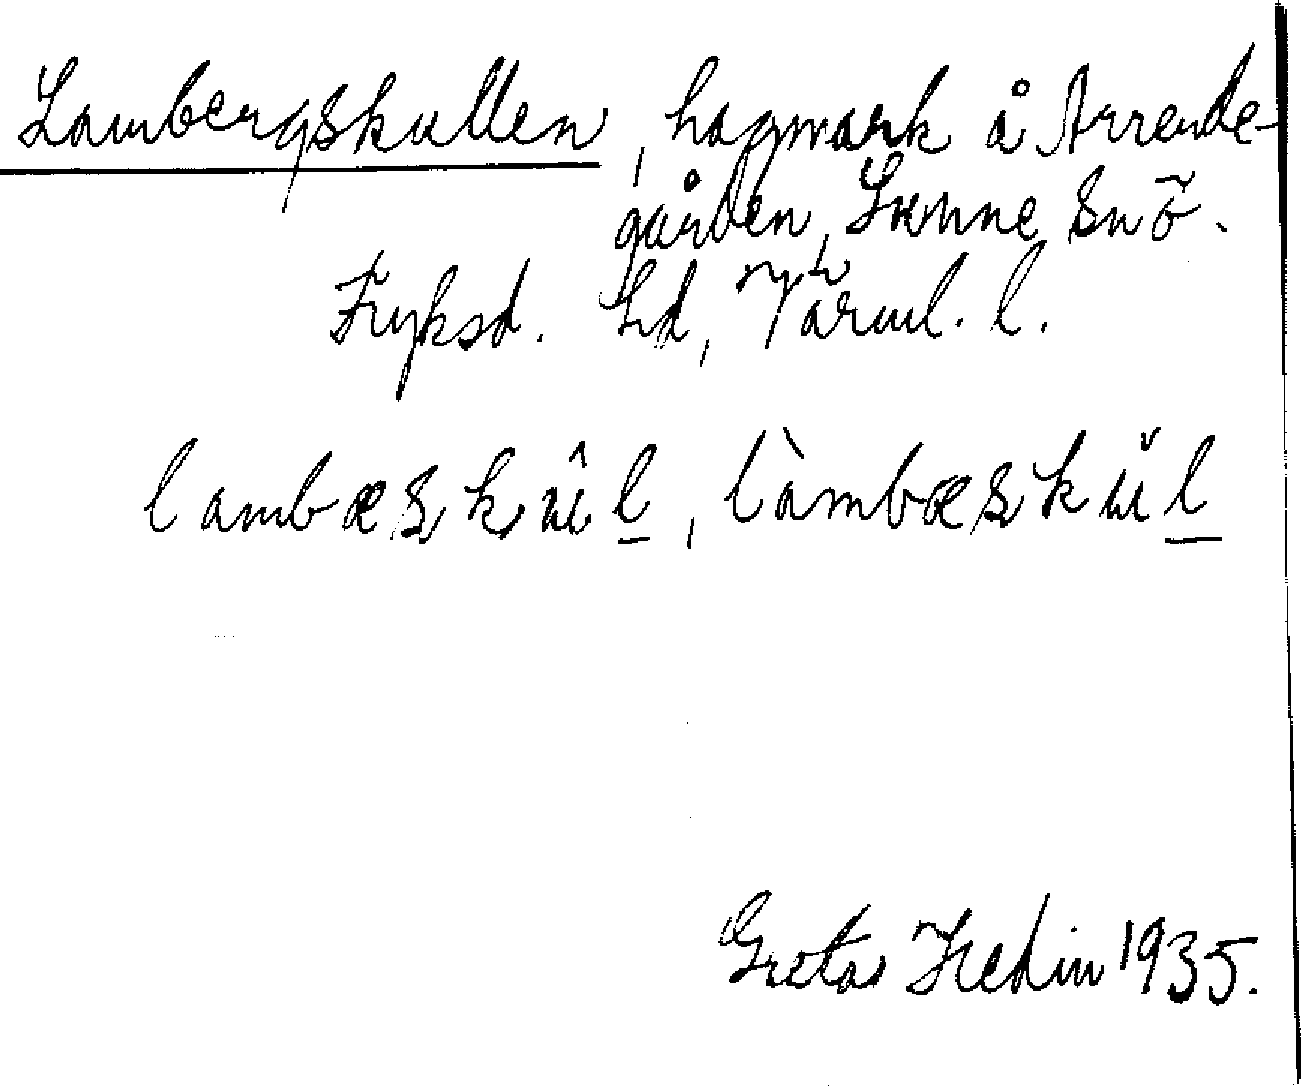 Lambergskullen, hagmark å Arrende-
gården, Lönne snö.
Fryksd. hd, Värml. l.
lambæskûl, làmbæskŭl
Greta Hedin 1935.